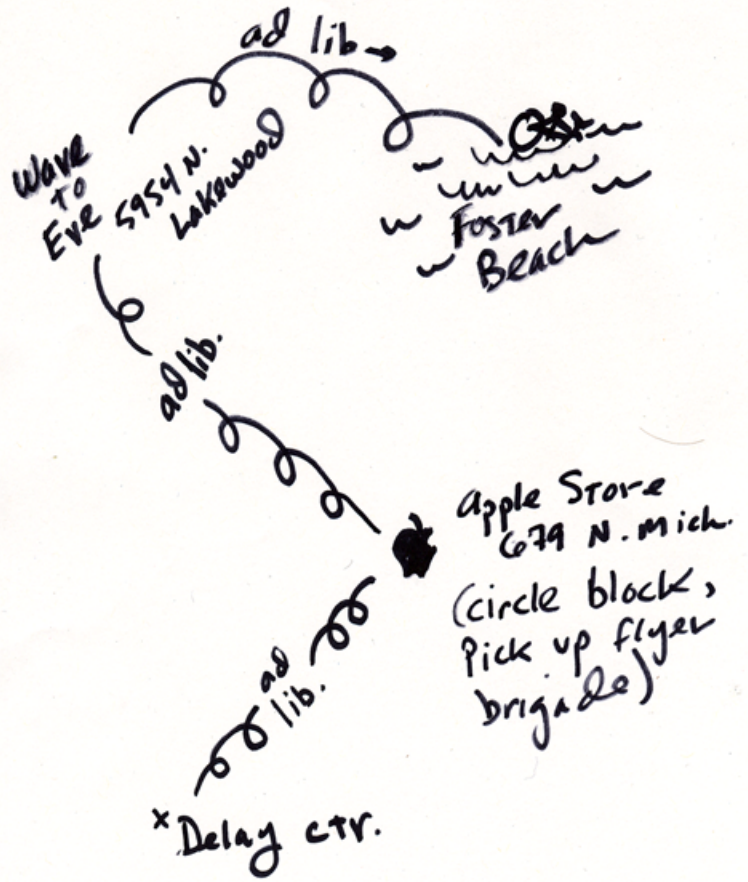 ad lib →
Wave
to
Eve
5954 N.
Lakewood
Foster
Beach
ad lib.
Apple Store
679 N. Mich.
(circle block,
Pick up flyer
brigade)
ad
lib.
x Delay ctr.